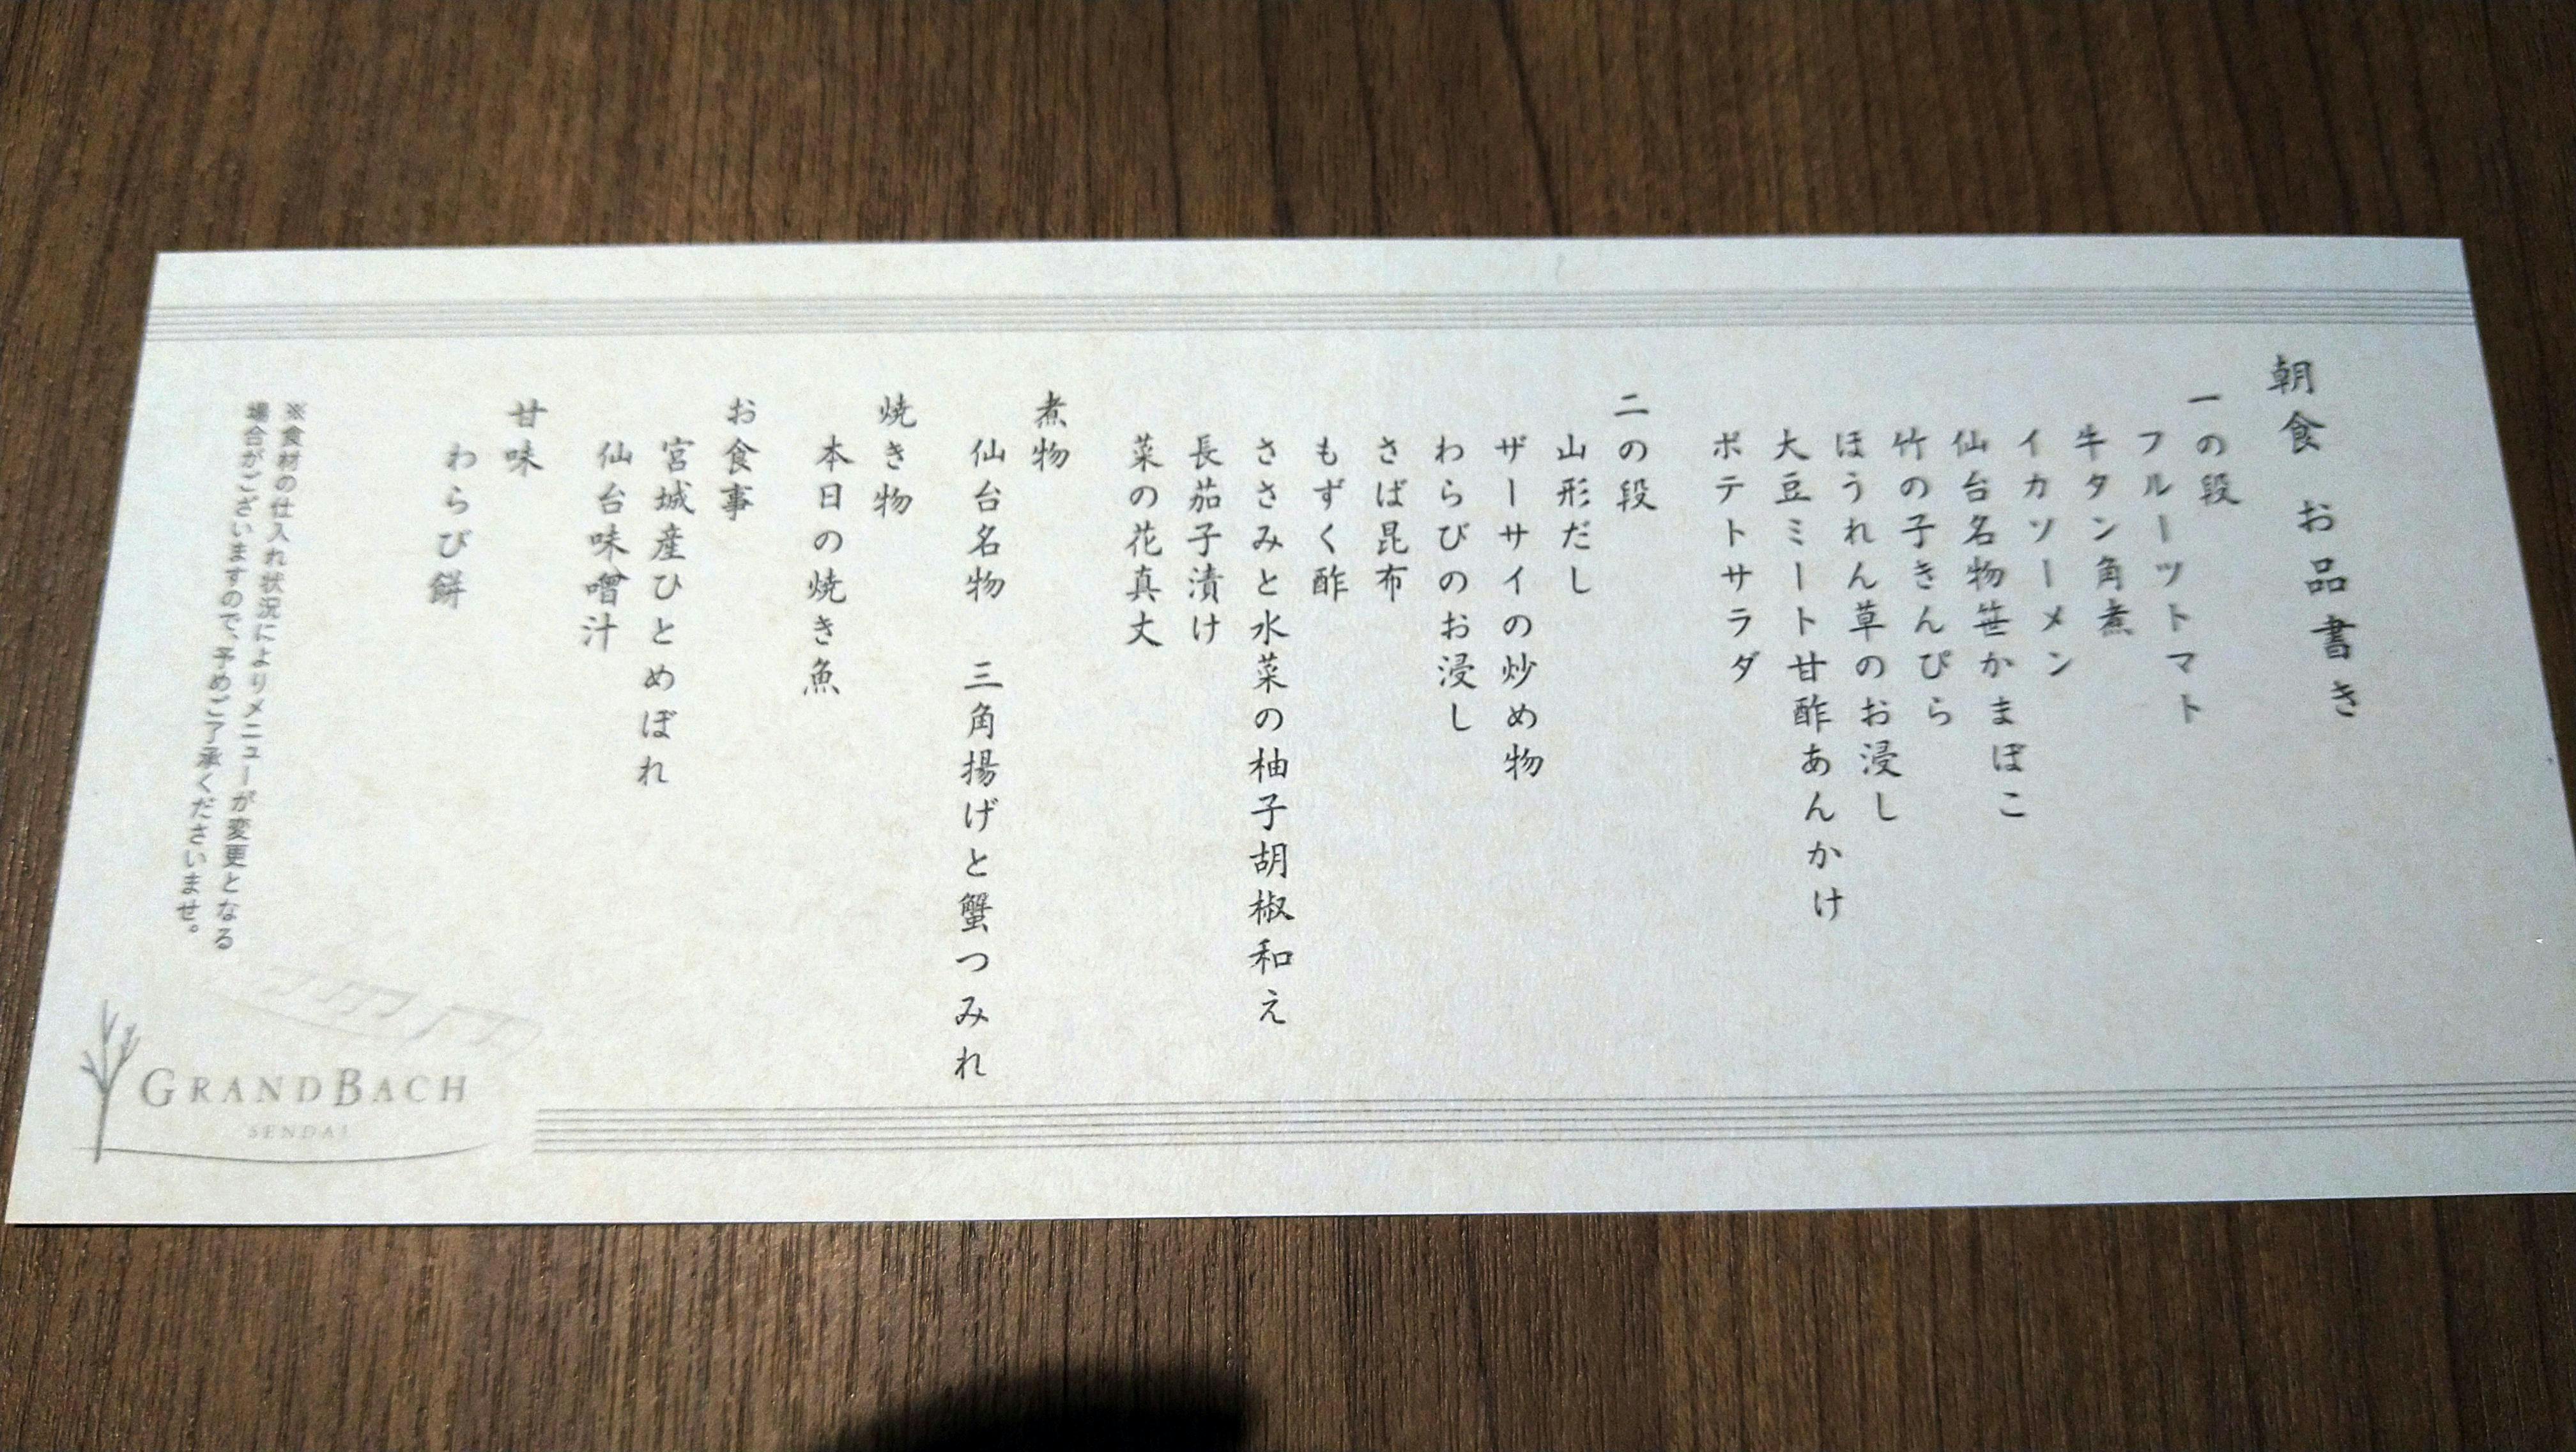 朝食　お品書き
一の段
フルーツトマト
牛タン角煮
イカソーメン
仙台名物笹かまぼこ
竹の子きんぴら
ほうれん草のお浸し
大豆ミート甘酢あんかけ
ポテトサラダ
二の段
山形だし
ザーサイの炒め物
わらびのお浸し
さば昆布
もずく酢
ささみと水菜の柚子胡椒和え
長茄子漬け
菜の花真丈
煮物
仙台名物　三角揚げと蟹つみれ
焼き物
本日の焼き魚
お食事
宮城産ひとめぼれ
仙台味噌汁
甘味
わらび餅
※食材の仕入れ状況によりメニューが変更となる
場合がございますので、予めご了承くださいませ。
GRANDBACH
SENDAI